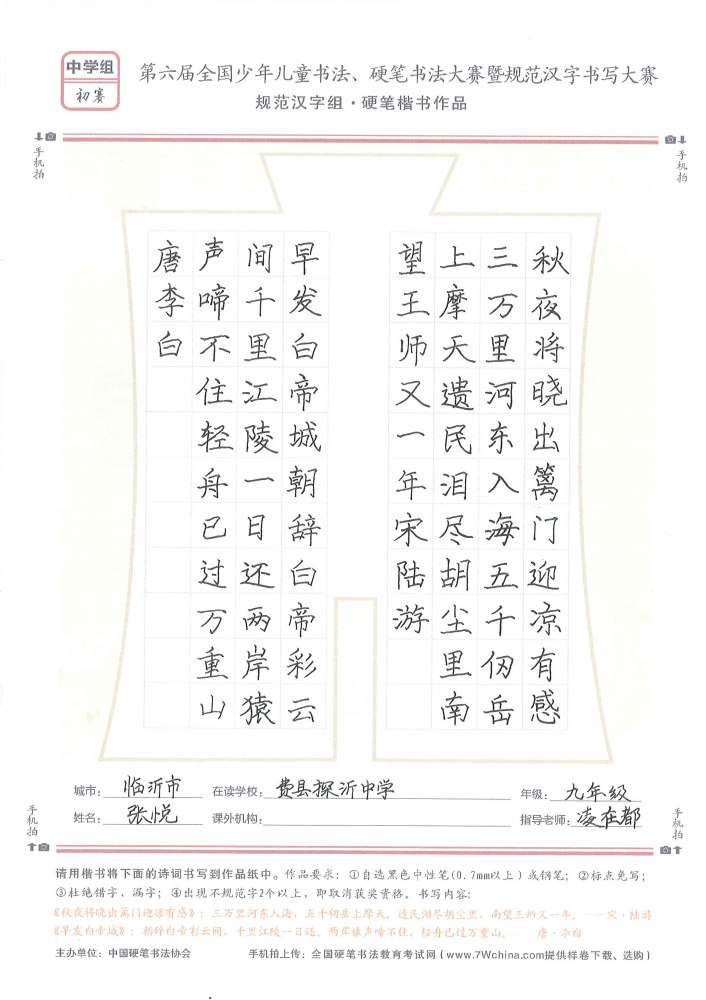 中学组
初赛
第六届全国少年儿童书法、硬笔书法大赛暨规范汉字书写大赛
规范汉字组·硬笔楷书作品
手机拍
手机拍
秋夜将晓出篱门迎凉有感
三万里河东入海五千仞岳
上摩天遗民泪尽胡尘里南
望王师又一年宋陆游
早发白帝城朝辞白帝彩云
间千里江陵一日还两岸猿
声啼不住轻舟已过万重山
唐李白
城市：临沂市 在读学校：费县探沂中学 年级：九年级
姓名：张悦 课外机构： 指导老师：凌在都
手机拍
手机拍
请用楷书将下面的诗词书写到作品纸中。作品要求：①自选黑色中性笔(0.7mm以上)或钢笔；②标点免写；
③杜绝错字、漏字；④出现不规范字2个以上，即取消获奖资格。书写内容：
《秋夜将晓出篱门迎凉有感》：三万里河东入海，五千仞岳上摩天。遗民泪尽胡尘里，南望王师又一年。——宋·陆游
《早发白帝城》：朝辞白帝彩云间，千里江陵一日还。两岸猿声啼不住，轻舟已过万重山。——唐·李白
主办单位：中国硬笔书法协会 手机拍上传：全国硬笔书法教育考试网（www.7Wchina.com提供样卷下载、选购）